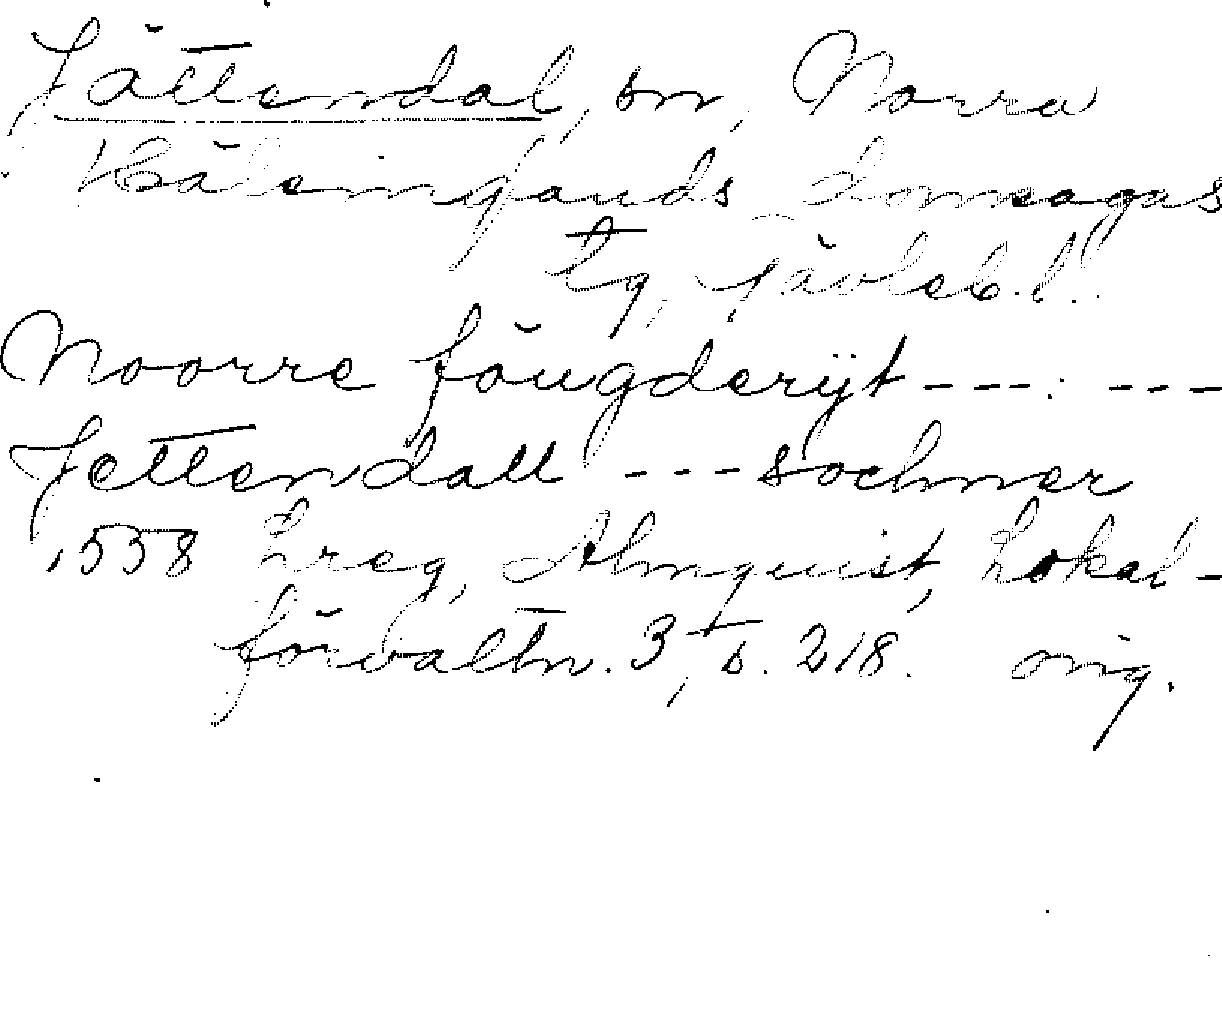 Jättendal, sn, Norra
Hälsinglands domsagas
tg, Gävleb. l.
Noorre fõugderijt --- ---
Jettendall --- sochner
1558 Lreg, Almquist, Lokal-
förvaltn. 3, s. 218. orig.